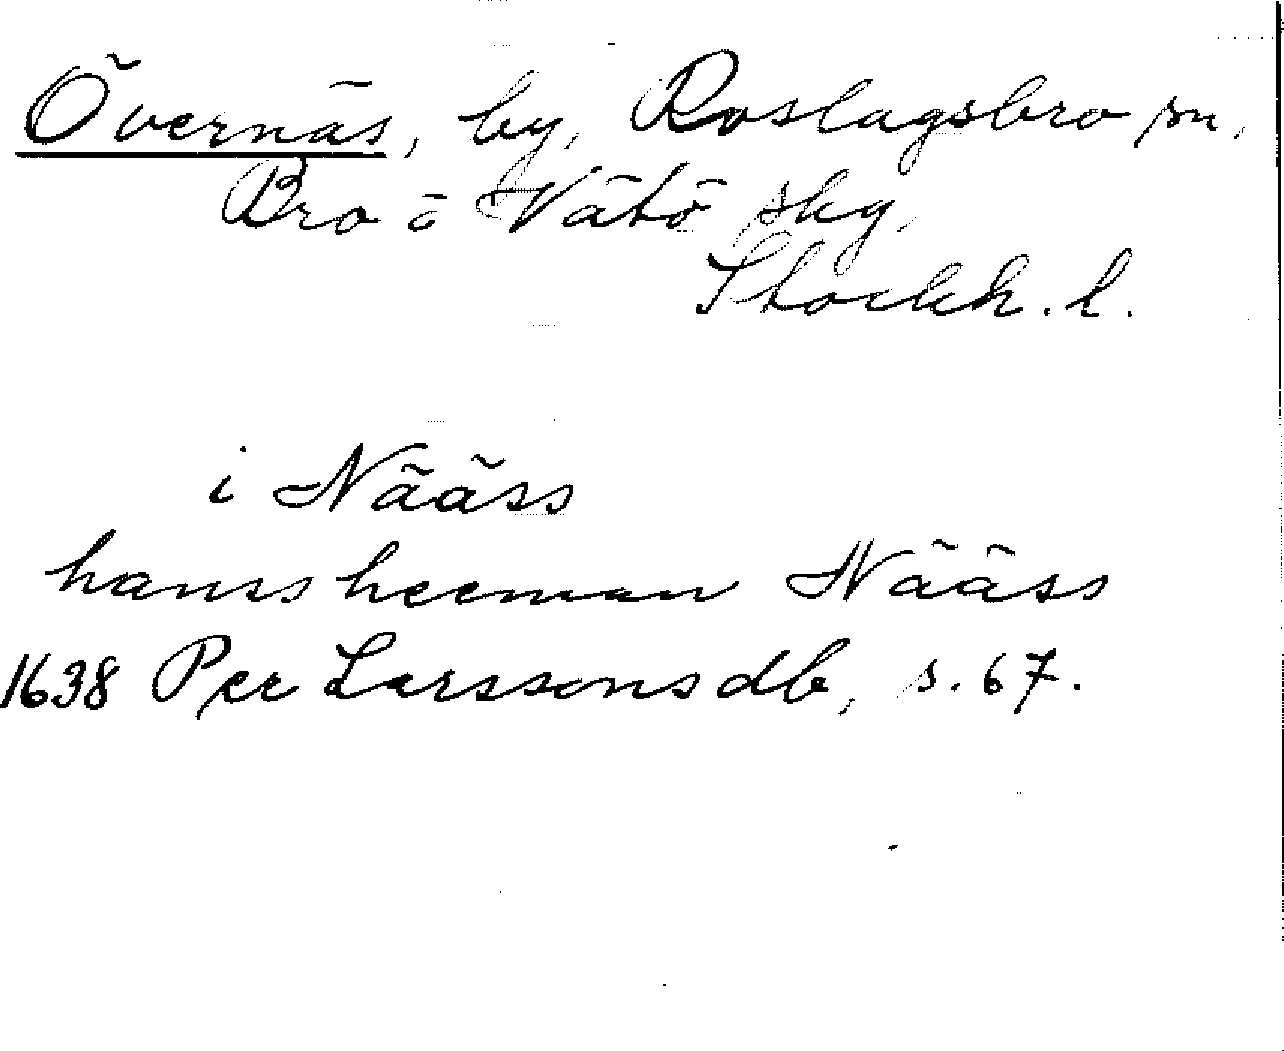 Övernäs, by, Roslagsbro sn,
Bro o Vätö skg.
Stockh. l.
i Nääss
hanss heeman Nääss
1638 Per Larssons db, s. 67.